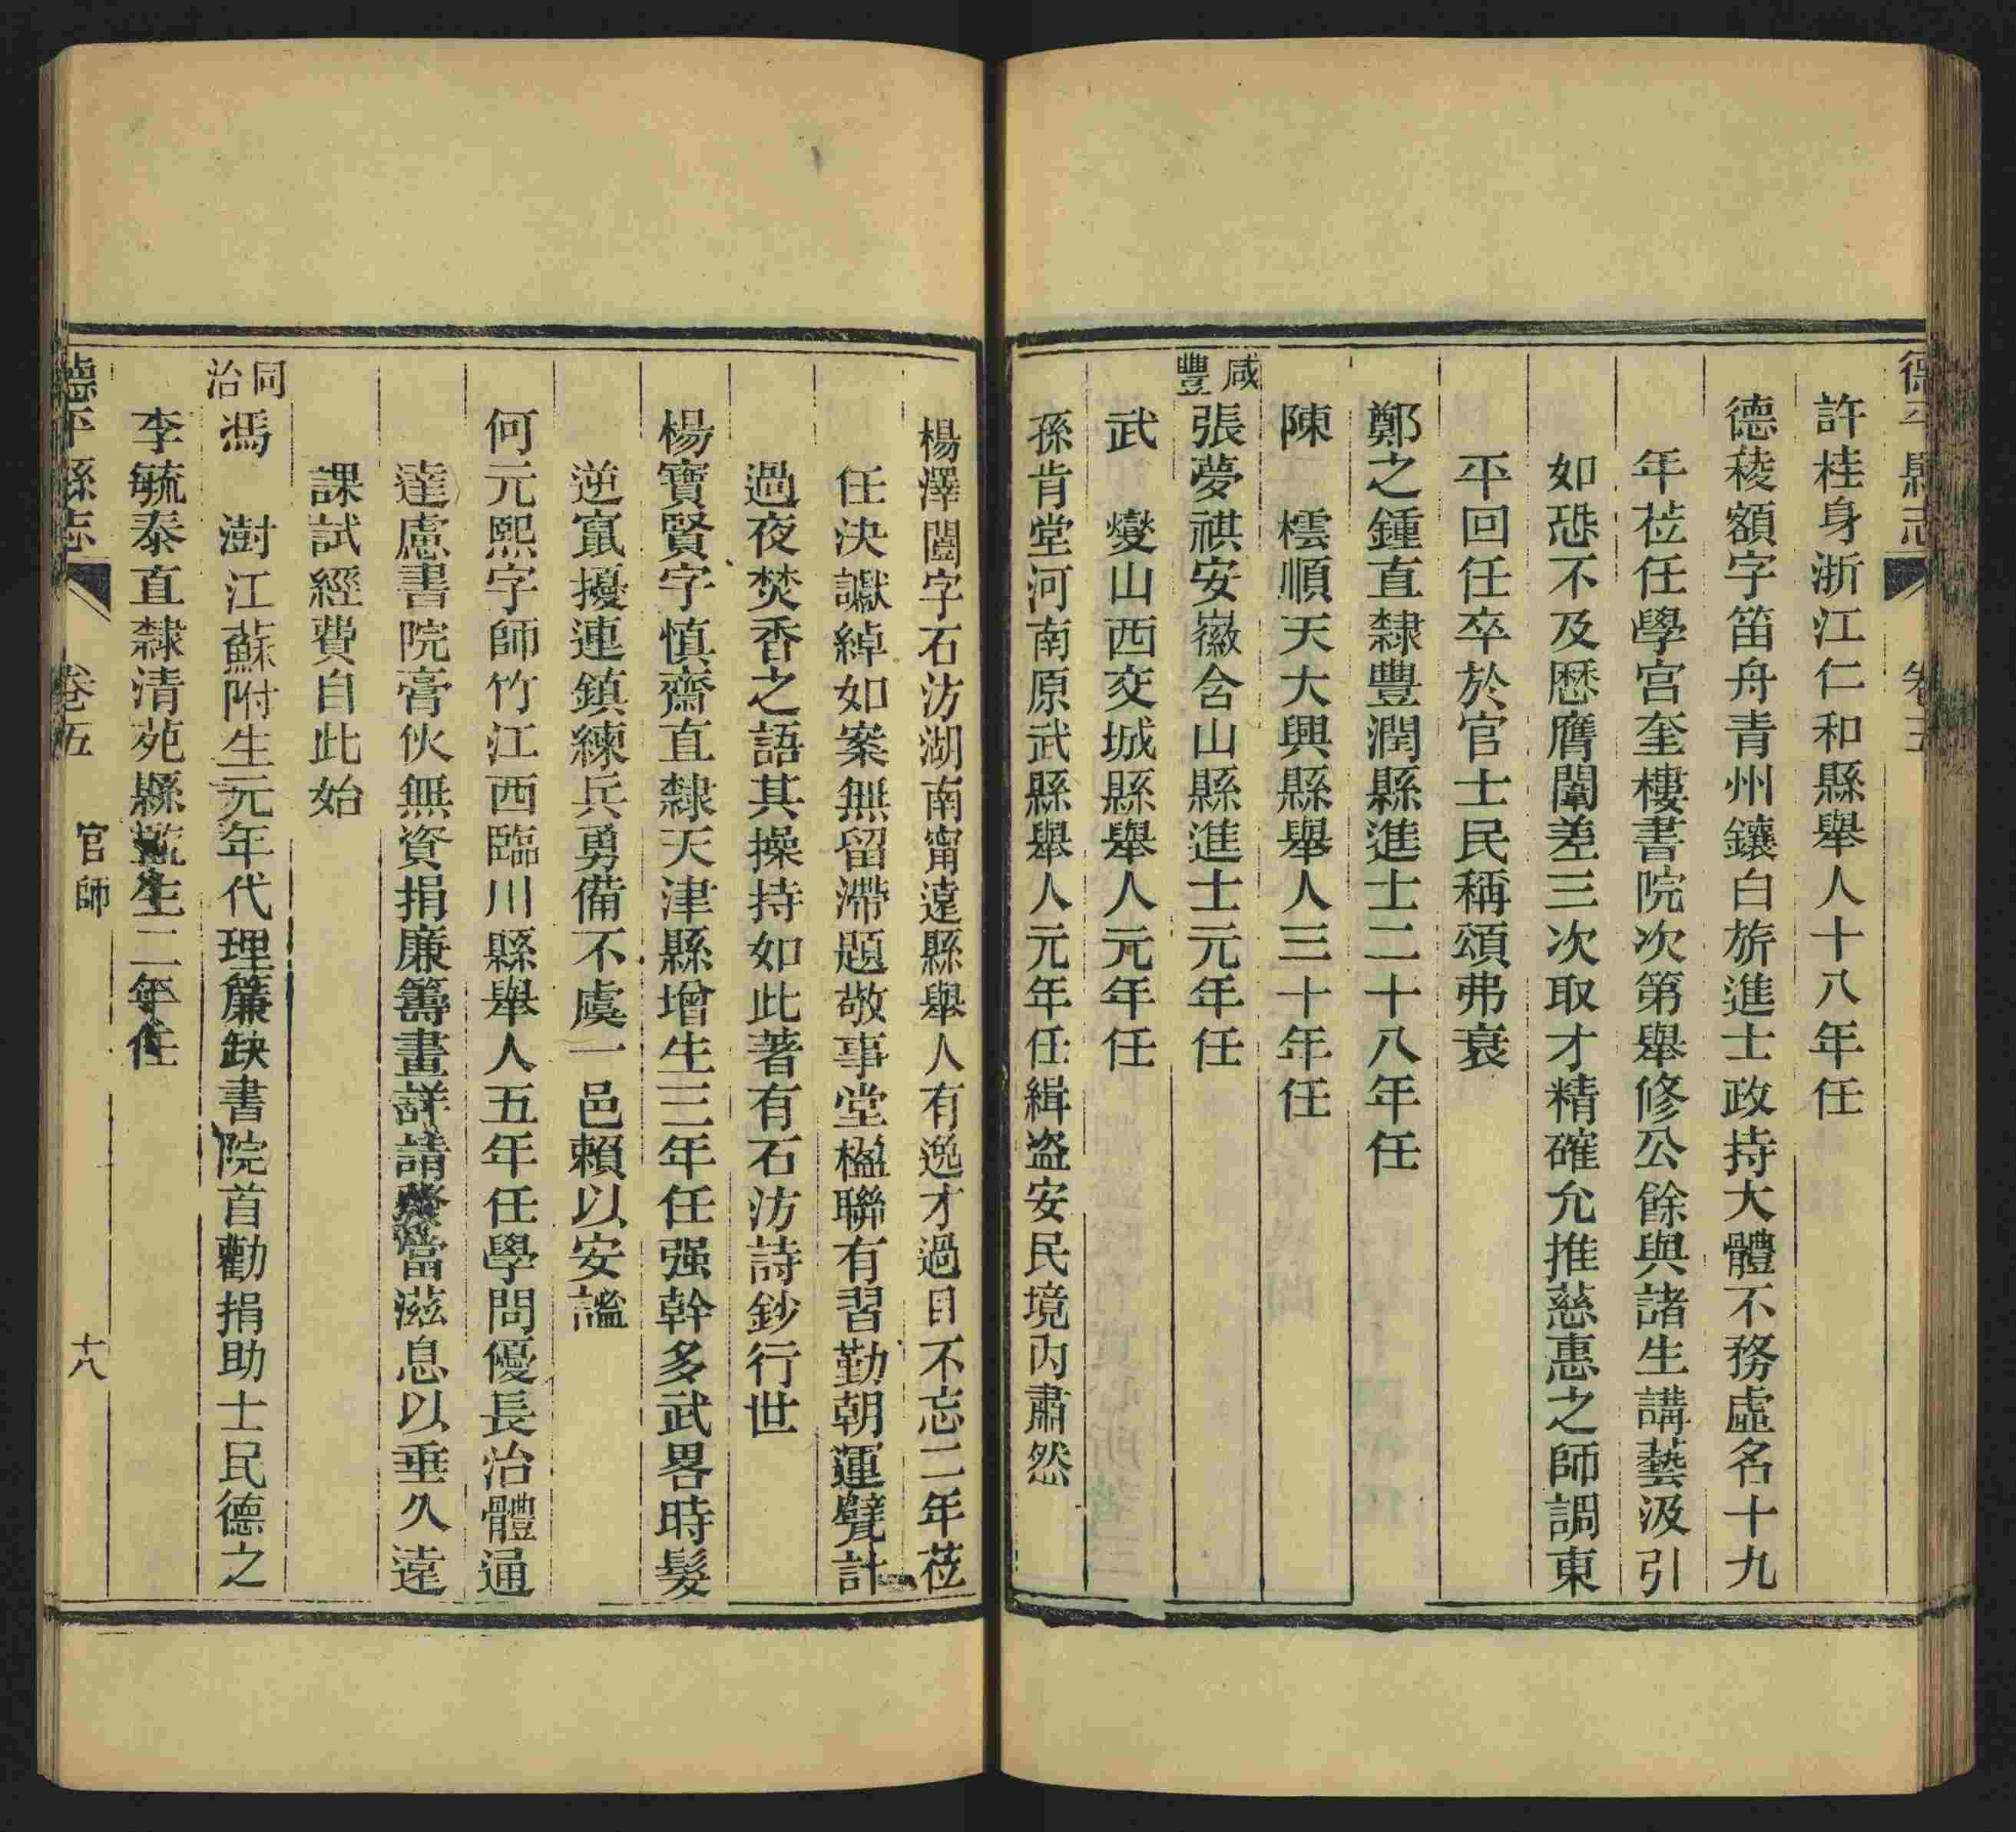 德平縣志 卷五
許桂身浙江仁和縣舉人十八年任
德稜額字笛舟青州鑲白旂進士政持大體不務虛名十九
年莅任學宮奎樓書院次第舉修公餘與諸生講藝汲引
如恐不及歷膺闈差三次取才精確允推慈惠之師調東
平回任卒於官士民稱頌弗衰
鄭之鍾直隸豐潤縣進士二十八年任
陳 橒順天大興縣舉人三十年任
咸豐
張夢祺安徽含山縣進士元年任
武 燮山西交城縣舉人元年任
孫肯堂河南原武縣舉人元年任緝盜安民境內肅然
楊澤闓字石汸湖南甯遠縣舉人有逸才過目不忘二年莅
任決讞綽如案無留滯題敬事堂楹聯有習勤朝運甓計
過夜焚香之語其操持如此著有石汸詩鈔行世
楊寶賢字慎齋直隸天津縣增生三年任强幹多武畧時髮
逆竄擾連鎮練兵勇備不虞一邑賴以安謐
何元熙字師竹江西臨川縣舉人五年任學問優長治體通
達慮書院膏伙無資捐廉籌畫詳請發當滋息以垂久遠
課試經費自此始
同治
馮 澍江蘇附生元年代理簾缺書院首勸捐助士民德之
李毓泰直隸清苑縣監生二年任
德平縣志 卷五 官師 十八